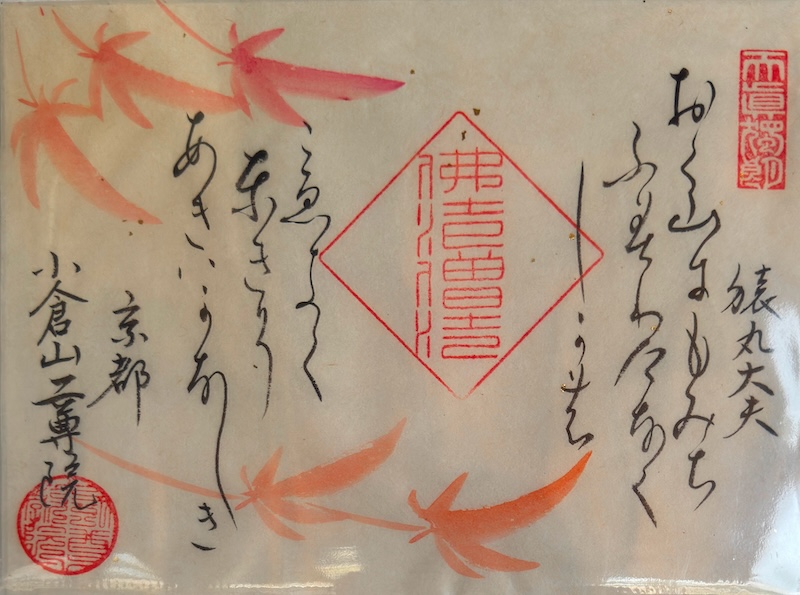 天眞獨朗
猿丸大夫
おく山にもみち
ふみわけなく
しかの
こゑきく
ときそ
あきはかなしき
京都
小倉山二尊院